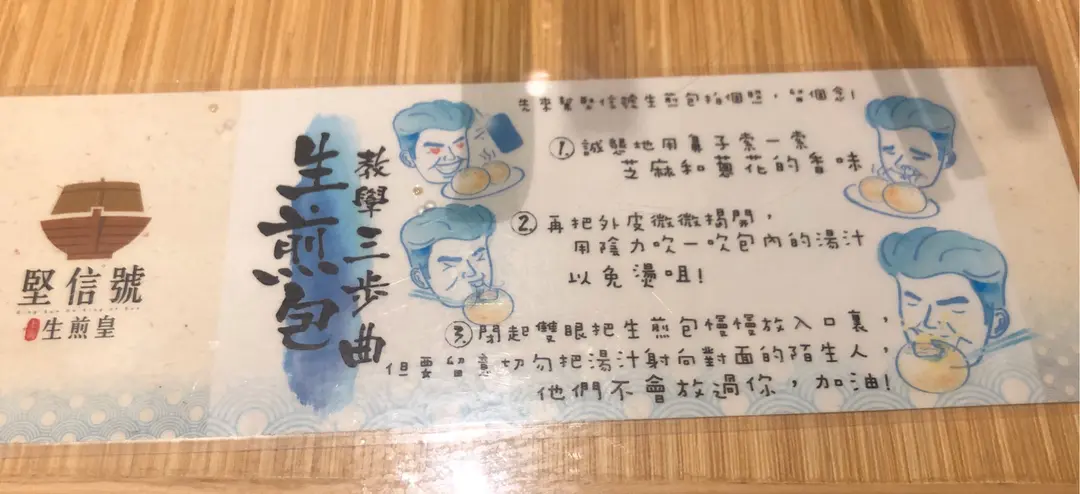 堅信號
生煎皇
生煎包
教學三步曲
先來幫堅信號生煎包拍個照，留個念!
1. 誠懇地用鼻子索一索
芝麻和蔥花的香味
2. 再把外皮微微揭開，
用陰力吹一吹包內的湯汁
以免燙咀!
3. 閉起雙眼把生煎包慢慢放入口裏，
但要留意切勿把湯汁射向對面的陌生人，
他們不會放過你，加油!